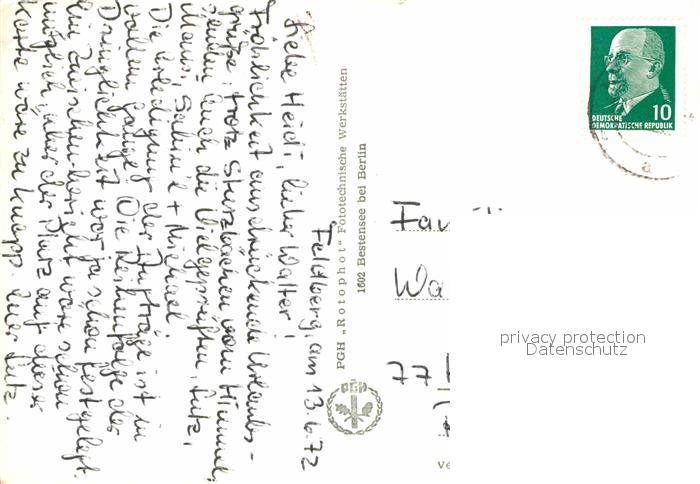 Feldberg, am 13.6.72
Liebe Heidi, lieber Walter!
Fröhlichkeit ausdrückende Urlaubs-
grüße, trotz Sturzbächen vom Himmel,
senden Euch die Vielgeprüften, Lutz,
Maus, Sabine + Michael.
Die Erledigung der Aufträge ist in
vollem Gange. Die Reihenfolge der
Dringlichkeit war ja schon festgelegt.
Ein Zwischenbericht wäre schon
möglich, aber der Platz auf dieser
Karte wäre zu knapp. Euer Lutz.
PGH „Rotophot“ Fototechnische Werkstätten
1602 Bestensee bei Berlin
10
DEUTSCHE
DEMOKRATISCHE REPUBLIK
Fam
Wa
77
Ve
privacy protection
Datenschutz